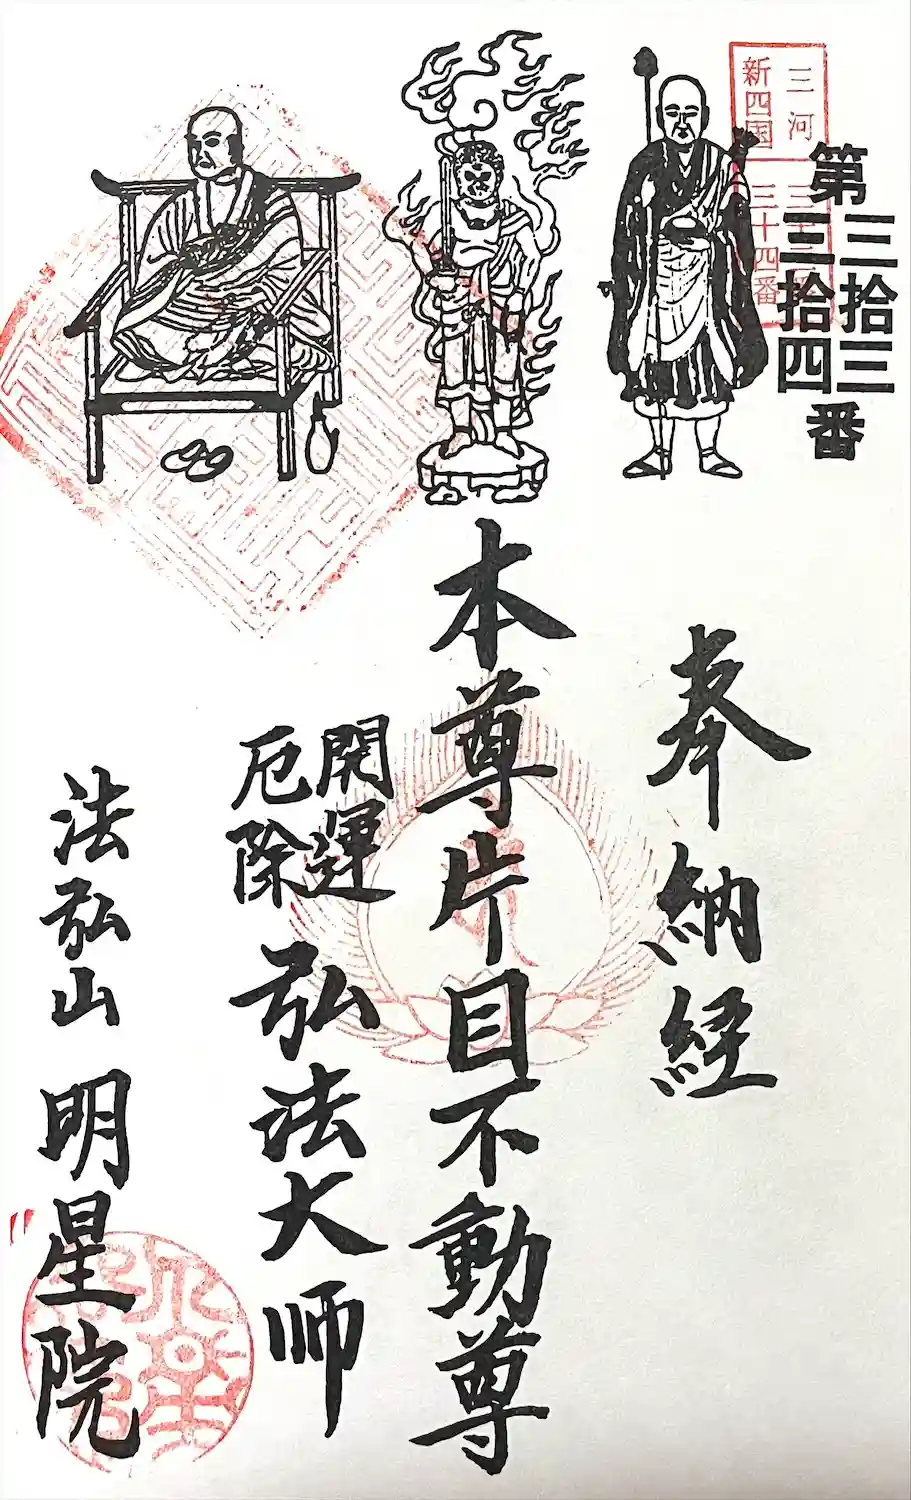 三河
新四国
三十四番
第
三拾三
三拾四
番
奉納経
本尊片目不動尊
開運
厄除
弘法大师
法弘山 明星院